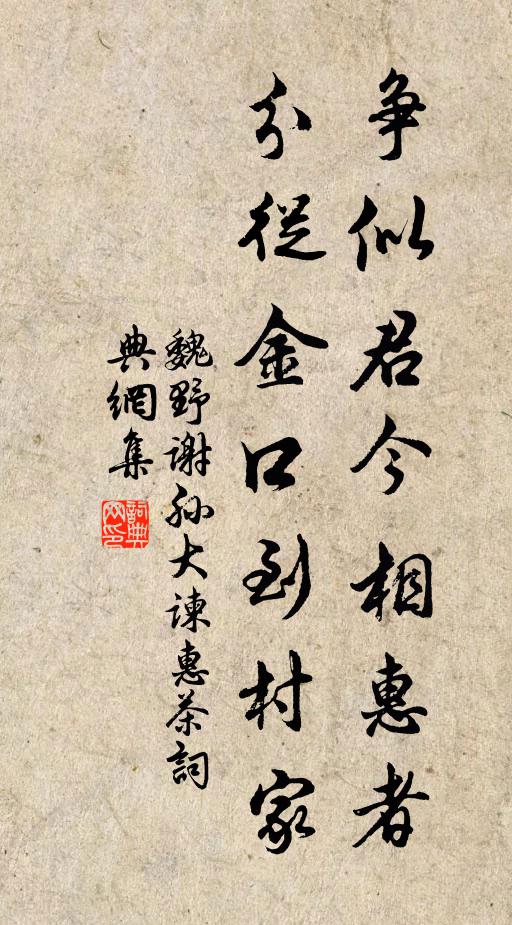 争似君今相惠者
分從金口到村家
魏野謝孙大諫惠茶詞
典網集
詞典
网印